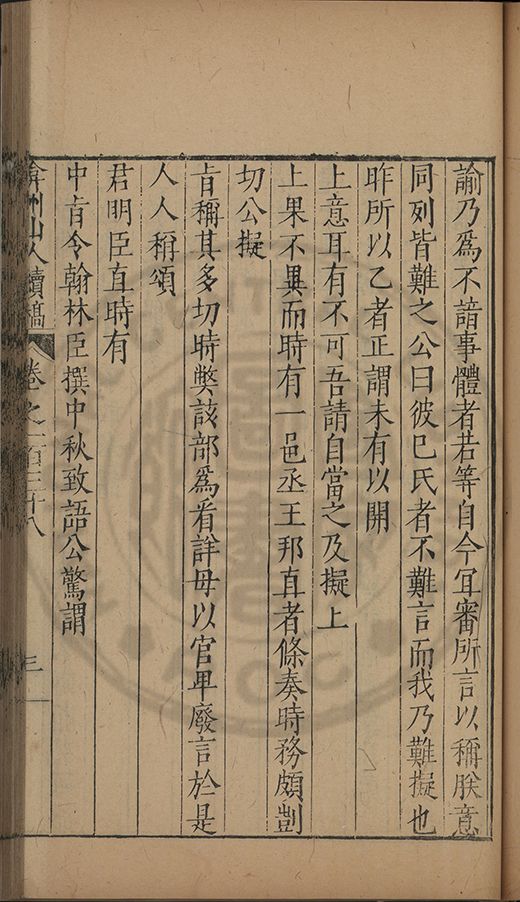 諭乃為不諳事體者若等自今冝審所言以稱朕意
同列皆難之公曰彼巳氏者不難言而我乃難擬也
昨所以乙者正謂未有以開
上意耳有不可吾請自當之及擬上
上果不異而時有一邑丞王邦直者條奏時務頗剴
切公擬
旨稱其多切時弊該部為看詳毋以官卑廢言於是
人人稱頌
君明臣直時有
中旨令翰林臣撰中秋致語公驚謂
弇州山人續稿 卷之一百三十八 三